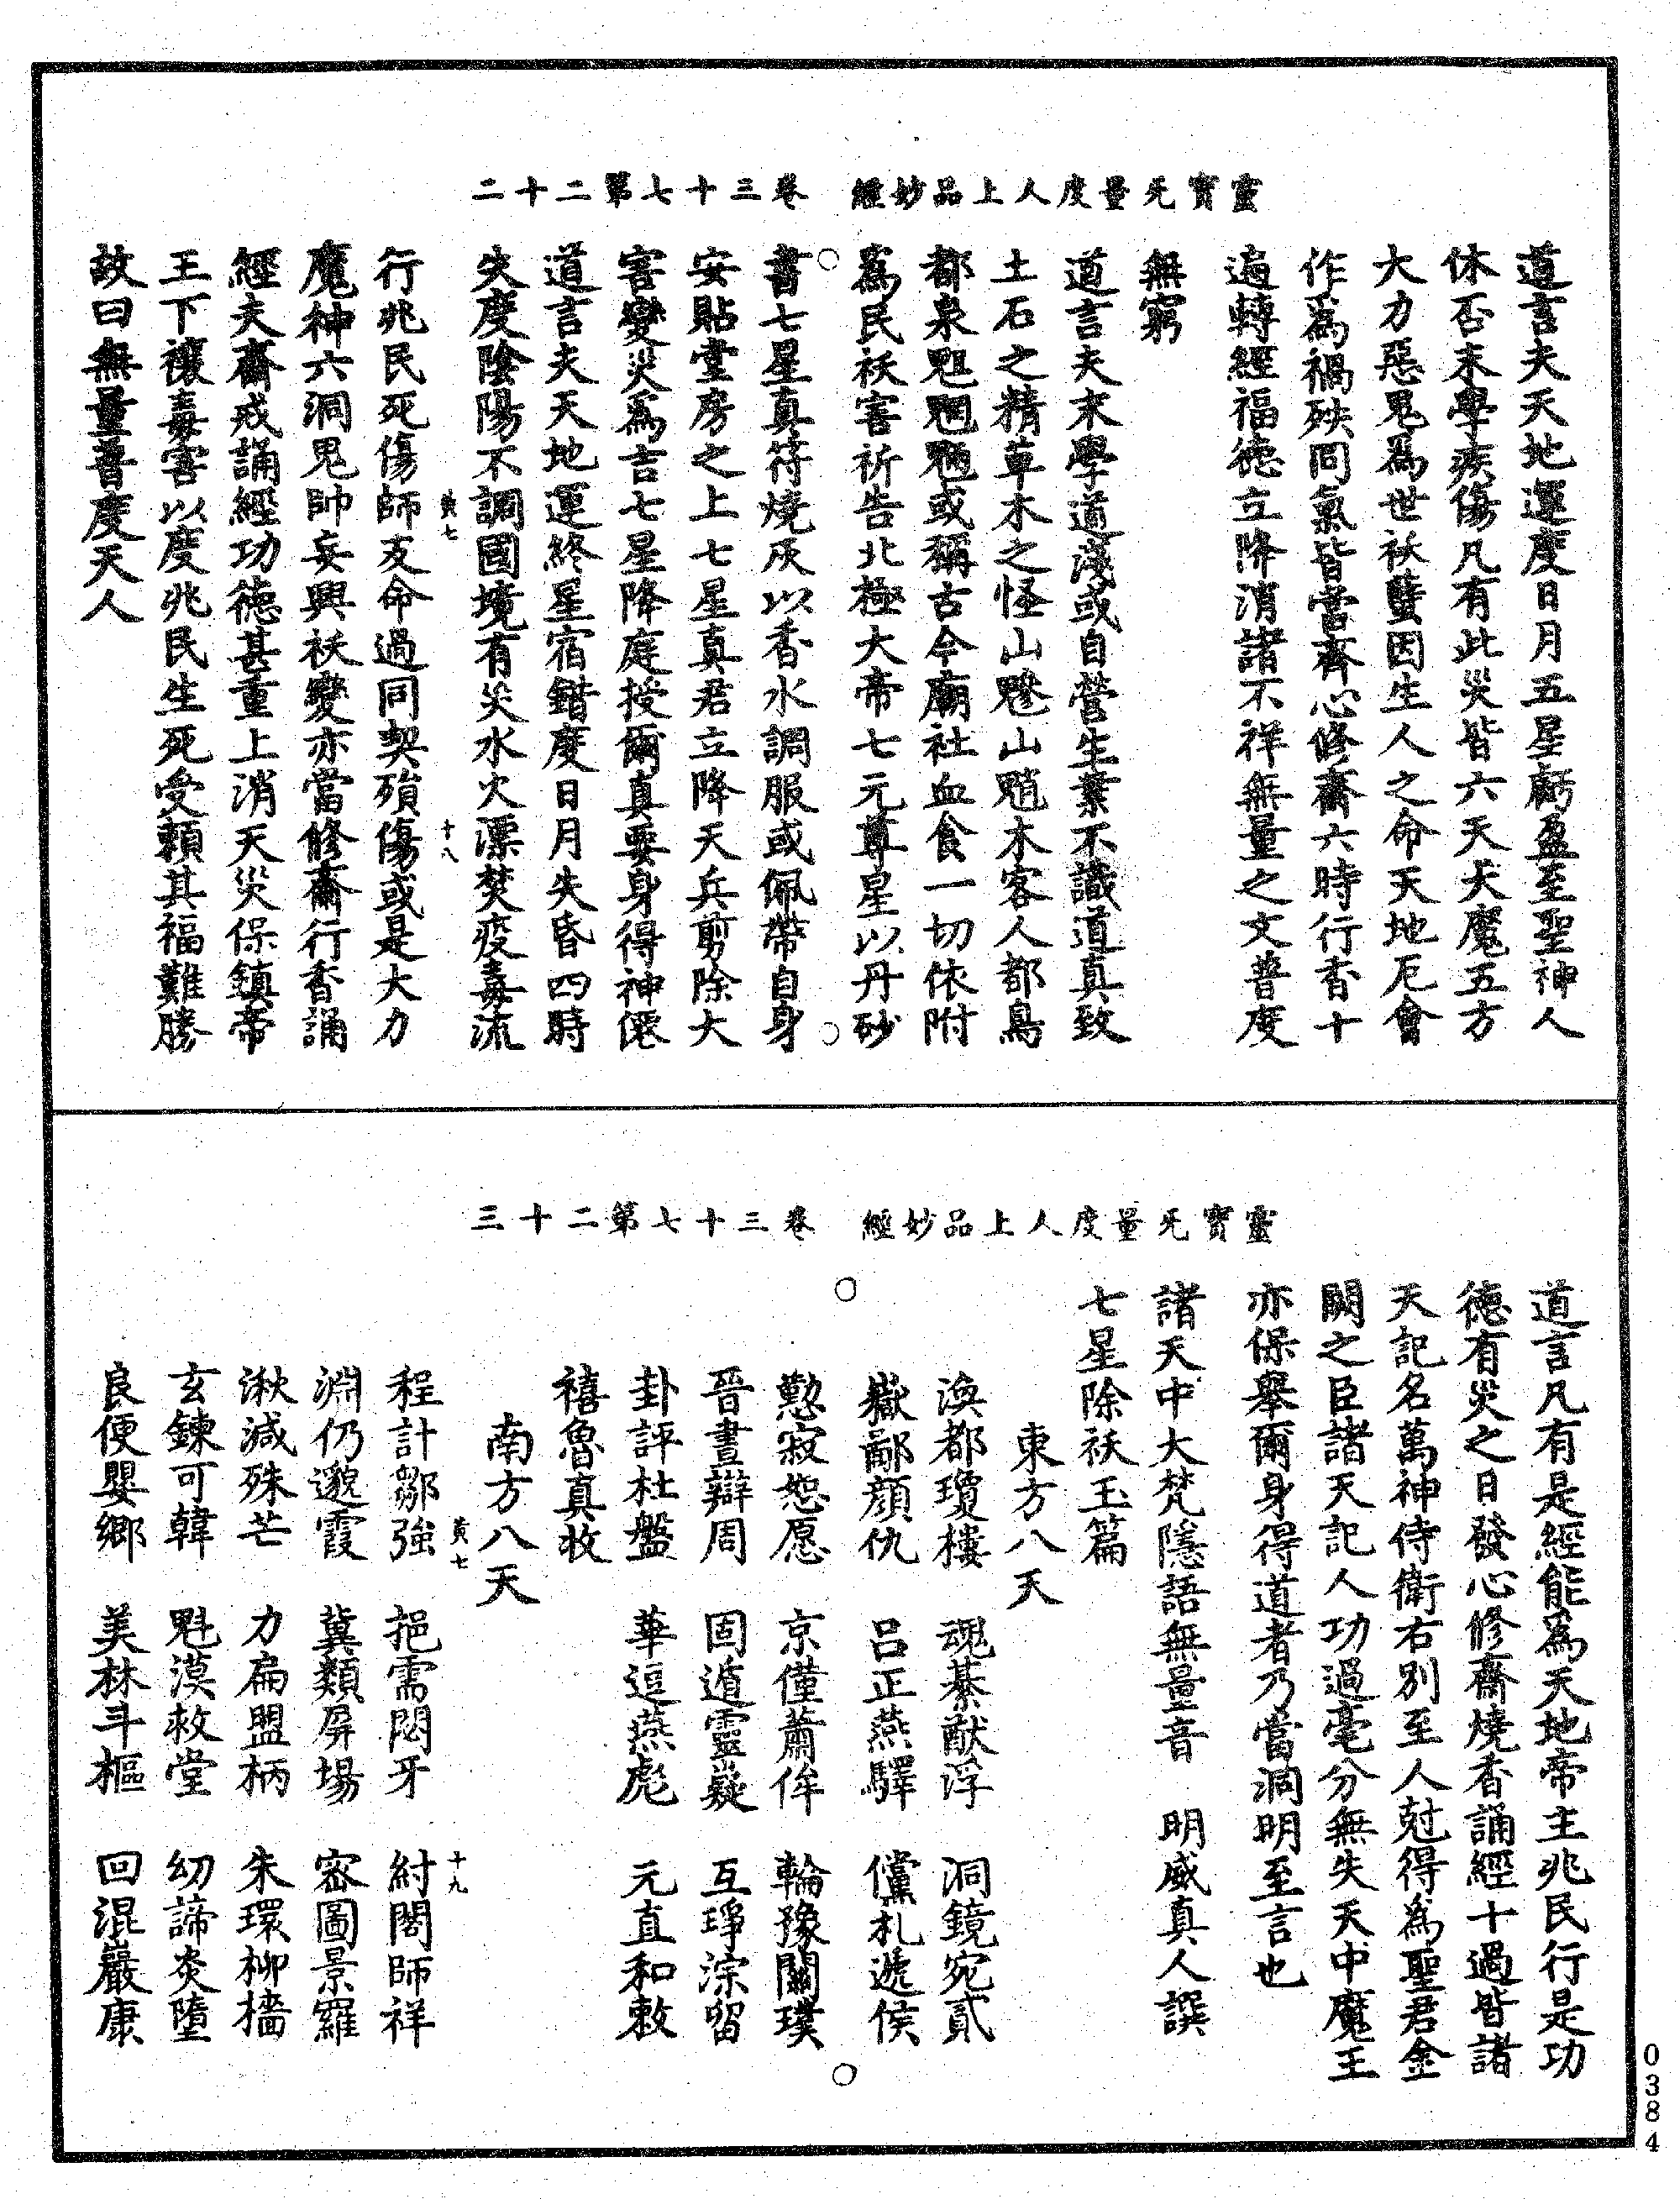 靈寶无量度人上品妙經　卷三十七第二十二
道言夫天地運度日月五星虧盈至聖神人
休否末學疾傷凡有此災皆六天大魔五方
大力惡鬼爲世祅蠥因生人之命天地厄會
作爲禍殃同氣皆當齊心修齋六時行香十
遍轉經福德立降消諸不祥無量之文普度
無窮
道言夫末學道淺或自營生業不識道真致
土石之精草木之怪山魈山魈木客人都鳥
都梟魁魍魎或稱古今廟社血食一切依附
爲民祅害祈告北極大帝七元尊星以丹砂
書七星真符燒灰以香水調服或佩帶自身
安貼堂房之上七星真君立降天兵剪除大
害變災爲吉七星降庭授爾真要身得神僊
道言夫天地運終星宿錯度日月失昏四時
失度陰陽不調國境有災水火漂焚疫毒流
黃七
十八
行兆民死傷師友命過同契殞傷或是大力
魔神六洞鬼帥妄興祅變亦當修齋行香誦
經夫齋戒誦經功德甚重上消天災保鎮帝
王下禳毒害以度兆民生死受賴其福難勝
故曰無量普度天人
靈寶无量度人上品妙經　卷三十七第二十三
道言凡有是經能爲天地帝主兆民行是功
德有災之日發心修齋燒香誦經十過皆諸
天記名萬神侍衛右別至人尅得爲聖君金
闕之臣諸天記人功過毫分無失天中魔王
亦保舉爾身得道者乃當洞明至言也
諸天中大梵隱語無量音　明威真人譔
七星除祅玉篇
東方八天
渙都瓊樓　魂綦猷浮　洞鏡宛貳
嶽鄗顏仇　呂正燕驛　儻札遞侯
懃寂恕愿　京僅蕭侔　輪豫闞璞
晉晝辯周　固遁靈嶷　互琤淙留
卦評杜盤　華逗燕彪　元直和敕
禧魯真牧
南方八天
黃七
十九
程計鄒強　挹需悶牙　紂閣師祥
淵仍邈霞　冀類屏場　密圖景羅
湫減殊芒　力扁盟柄　朱環柳檣
玄鍊可韓　魁漠救堂　幼諦炎墮
良便嬰鄉　美林斗樞　回混巖康
0384